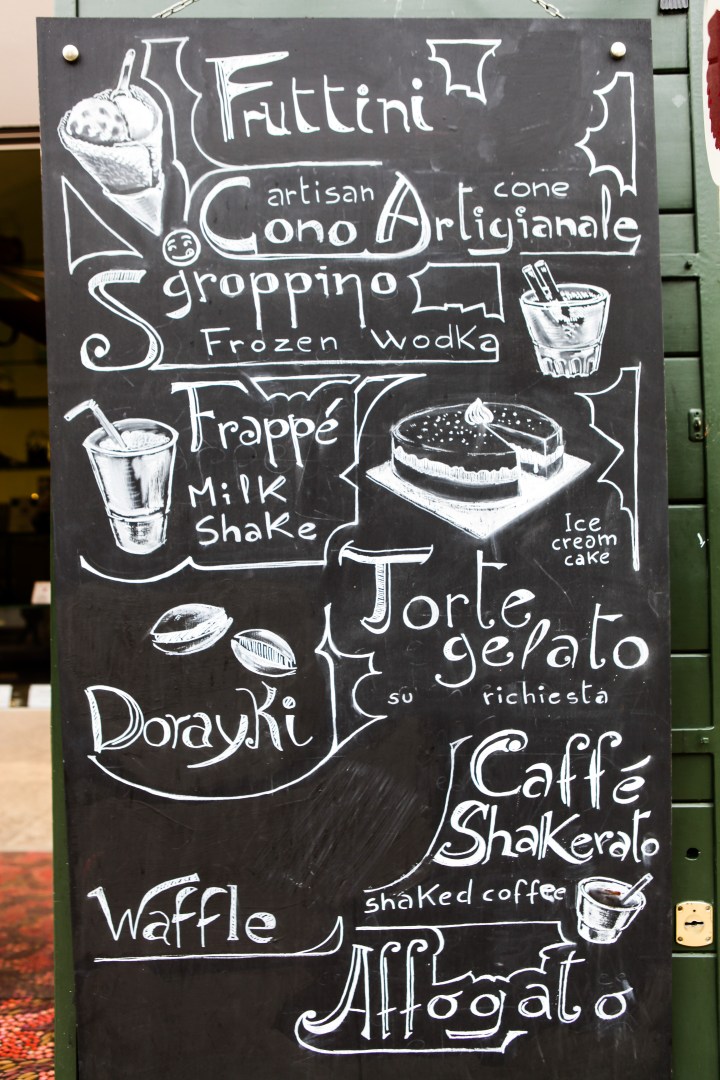 Fruttini
artisan cone
Cono Artigianale
Sgroppino
Frozen Wodka
Frappé
Milk
Shake
Ice
cream
cake
Torte
gelato
su richiesta
Dorayki
Caffé
Shakerato
shaked coffee
Waffle
Affogato